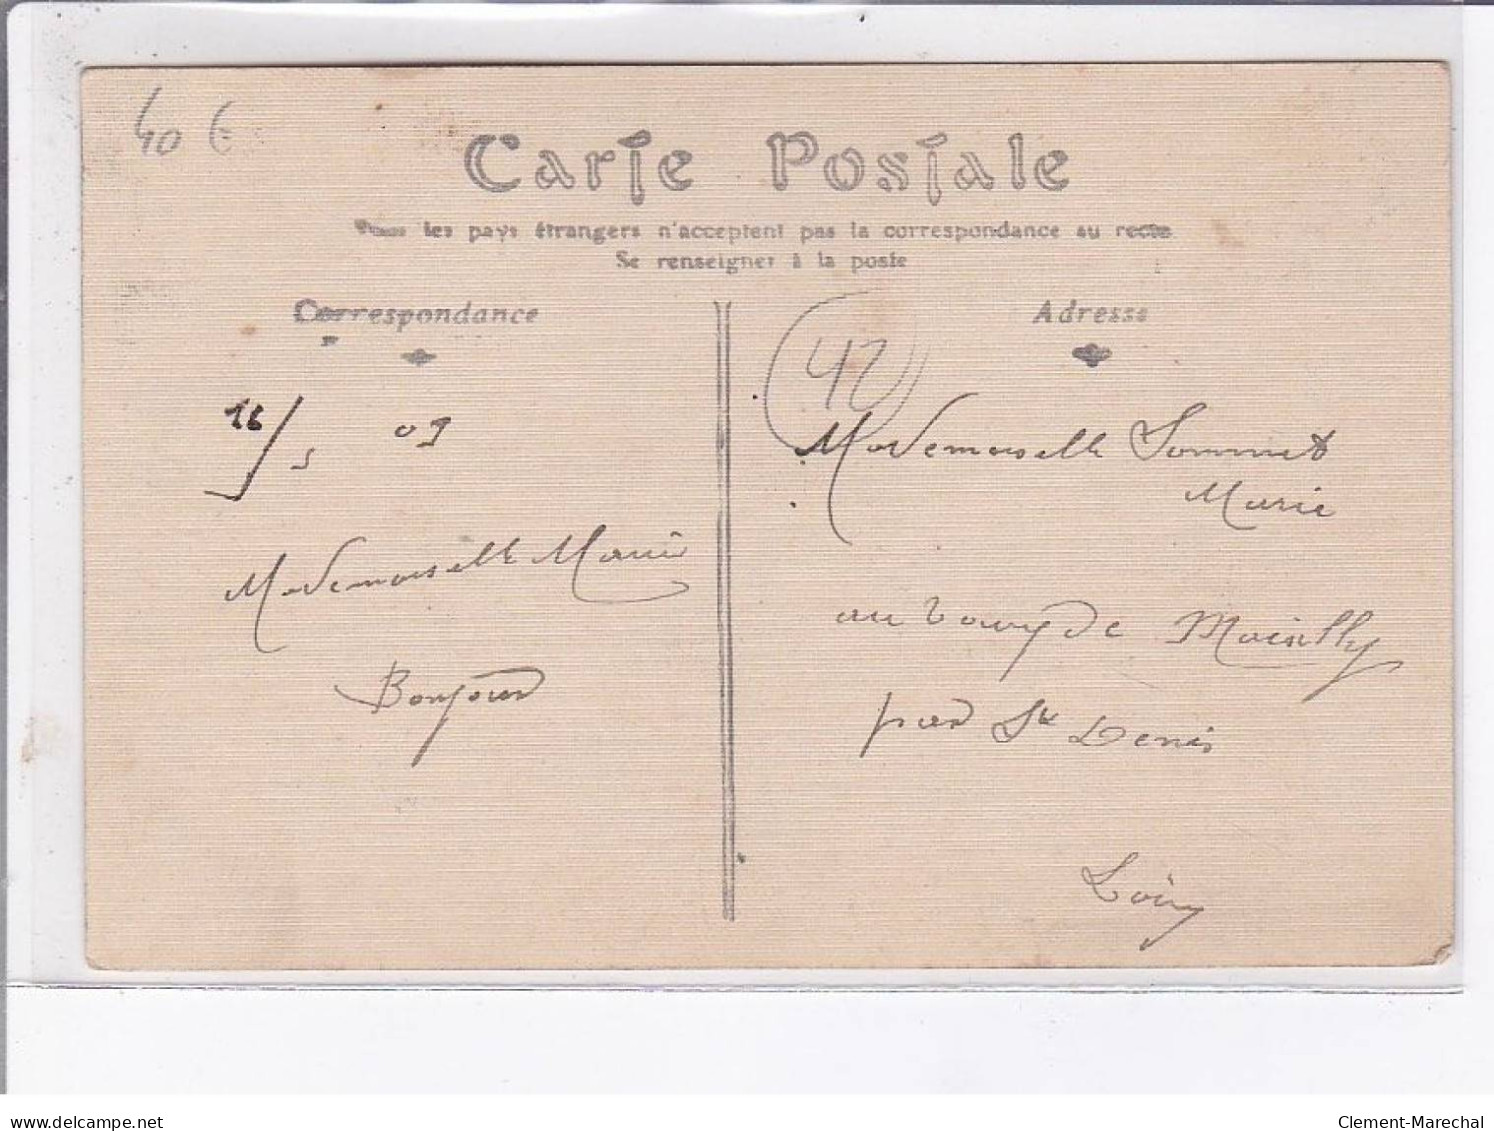 40 €
Carte Postale
Tous les pays étrangers n'acceptent pas la correspondance au recto
Se renseigner à la poste
Correspondance
16/5 09
Mademoiselle Marie
Bonjour
Adresse
42
Mademoiselle Sommet
Marie
au bourg de
près St Denis
Loire
delcampe.net
Clement-Marechal